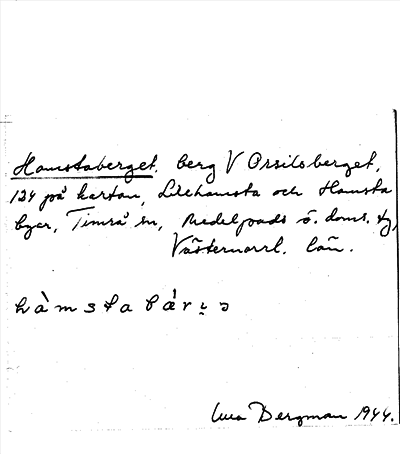 Hamstaberget, berg V Orsilsberget,
124 på kartan, Lilehamsta och Hamsta
byar, Timrå sn, Medelpads ö. doms. tg,
Västernorrl. län.
h à m s t a b á r
Bergman 1944.